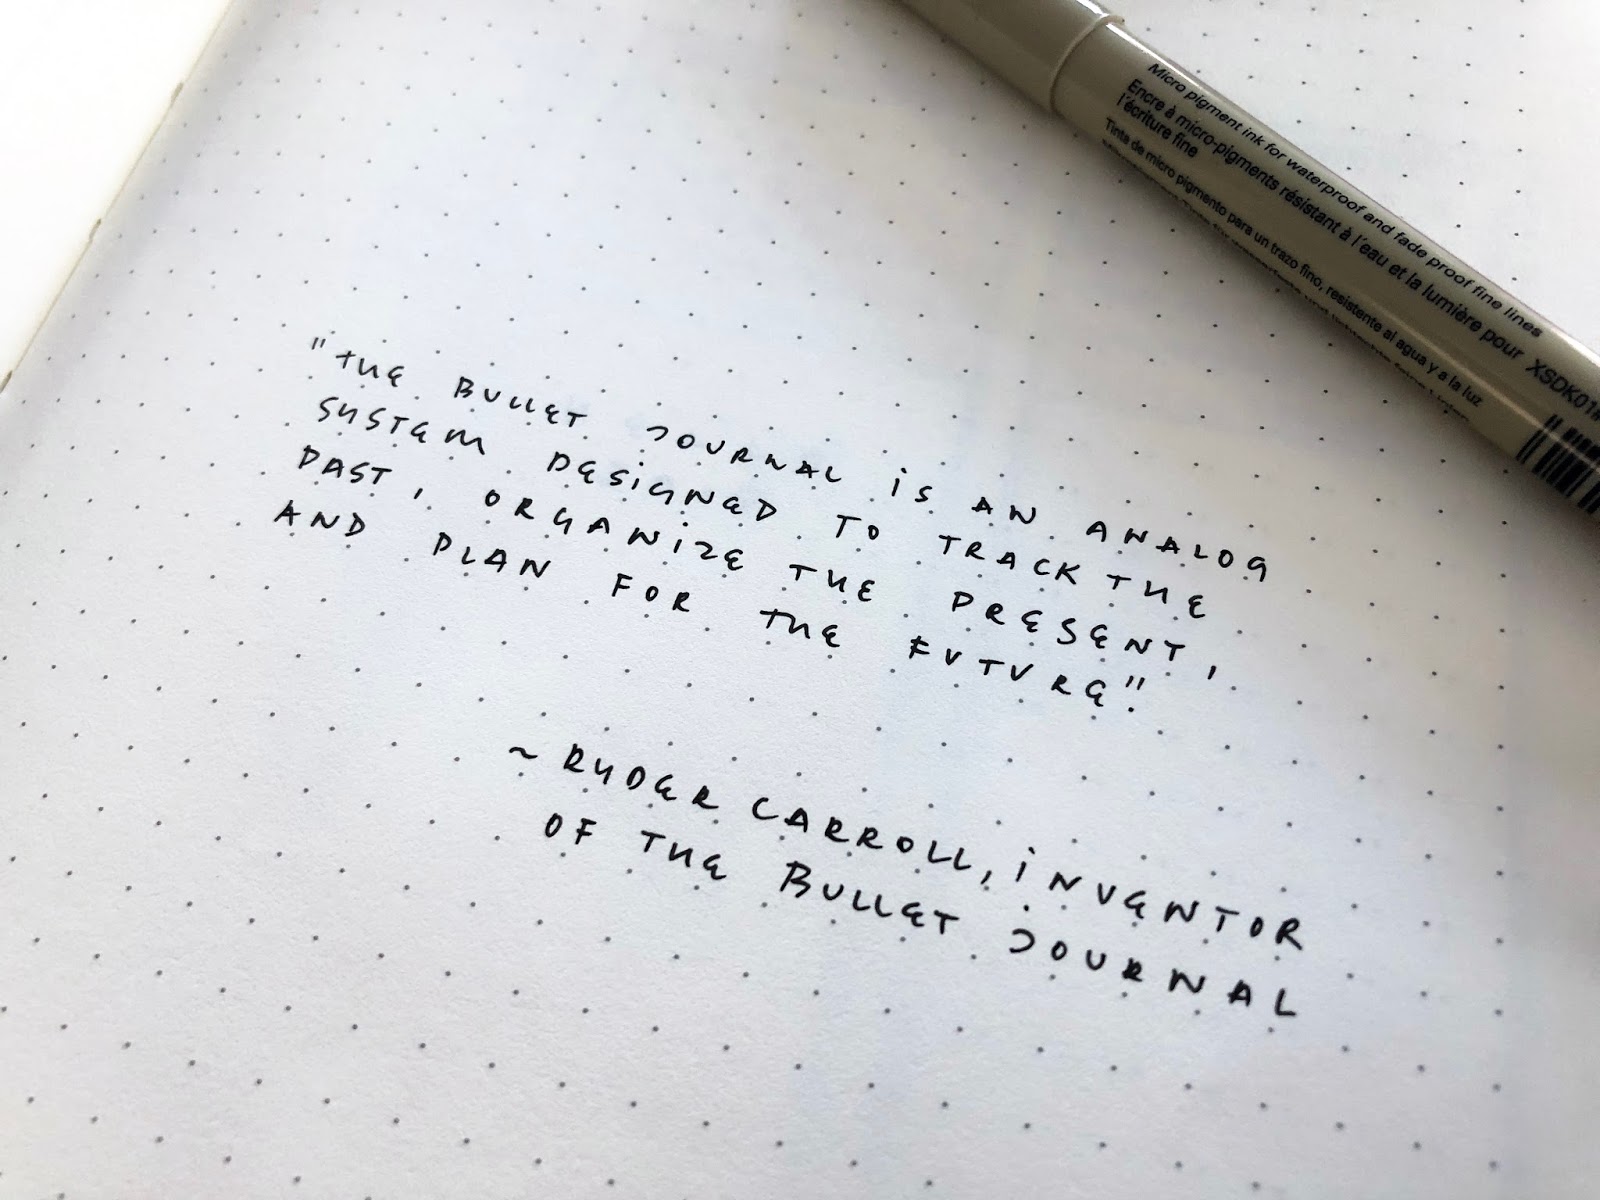 "THE BULLET JOURNAL IS AN ANALOG
SYSTEM DESIGNED TO TRACK THE
PAST, ORGANIZE THE PRESENT,
AND PLAN FOR THE FUTURE"
~ RYDER CARROLL, INVENTOR
OF THE BULLET JOURNAL
Micro pigment ink for waterproof and fade proof fine lines
Encre à micro-pigments résistant à l'eau et la lumière pour
l'écriture fine
Tinta de micro pigmento para un trazo fino, resistente al agua y a la luz
XSDK01#